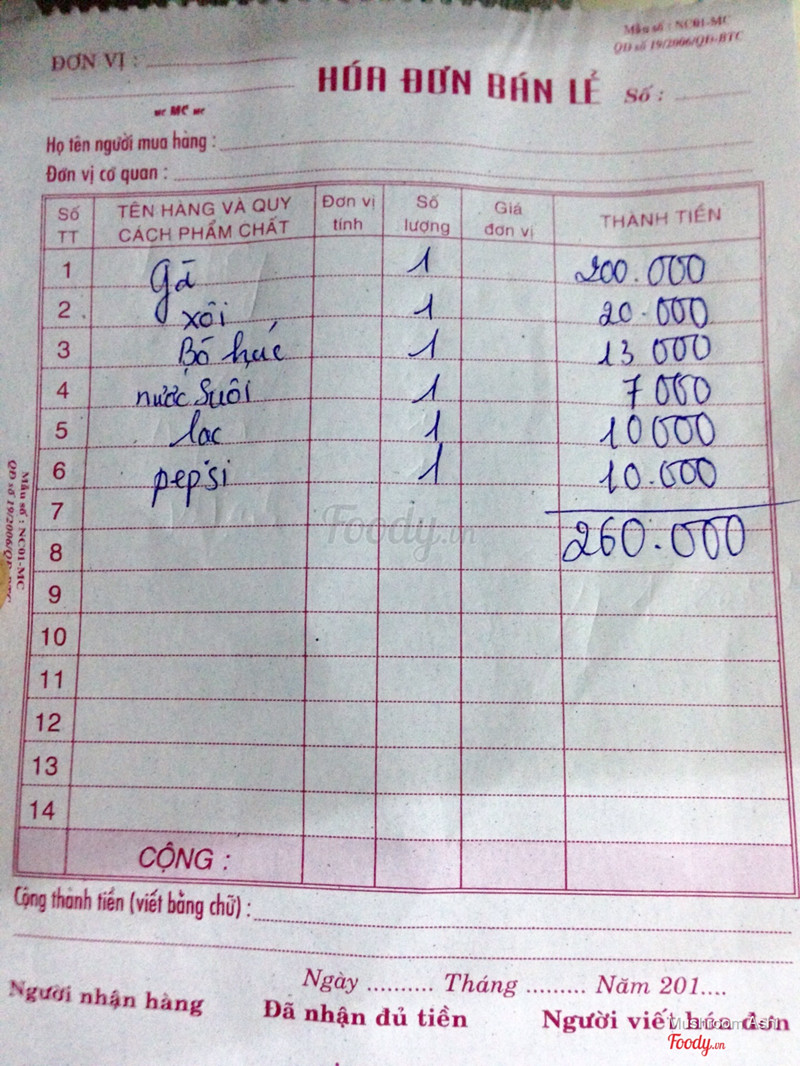 Mẫu số : NC01-MC
QĐ số 19/2006/QĐ-BTC
ĐƠN VỊ :
HÓA ĐƠN BÁN LẺ
Số :
MC
Họ tên người mua hàng :
Đơn vị cơ quan :
Số TT TÊN HÀNG VÀ QUY CÁCH PHẨM CHẤT Đơn vị tính Số lượng Giá đơn vị THÀNH TIỀN
1 gà 1 200.000
2 xôi 1 20.000
3 Bò húc 1 13 000
4 nước suôi 1 7 000
5 lac 1 10000
6 pepsi 1 10.000
7
8 260.000
9
10
11
12
13
14
CỘNG :
Cộng thành tiền (viết bằng chữ) :
Ngày .......... Tháng ......... Năm 201....
Người nhận hàng Đã nhận đủ tiền Người viết hóa đơn
Mẫu số : NC01-MC
QĐ số 19/2006/QĐ-BTC
Foody.vn
Mushroom
Foody.vn